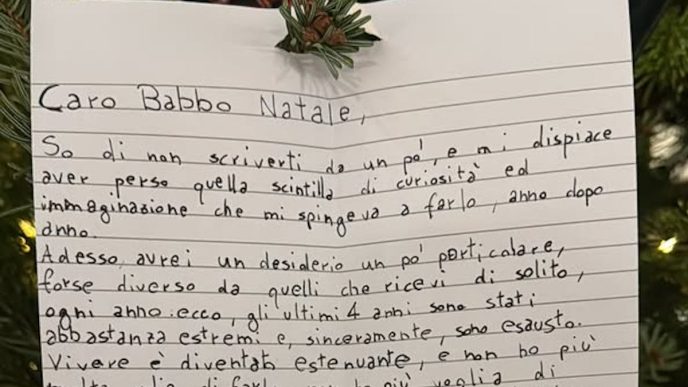 Caro Babbo Natale,
So di non scriverti da un po', e mi dispiace
aver perso quella scintilla di curiosità ed
immaginazione che mi spingeva a farlo, anno dopo
anno.
Adesso avrei un desiderio un po' particolare,
forse diverso da quelli che ricevi di solito,
ogni anno: ecco, gli ultimi 4 anni sono stati
abbastanza estremi e, sinceramente, sono esausto.
Vivere è diventato estenuante, e non ho più
voglia di